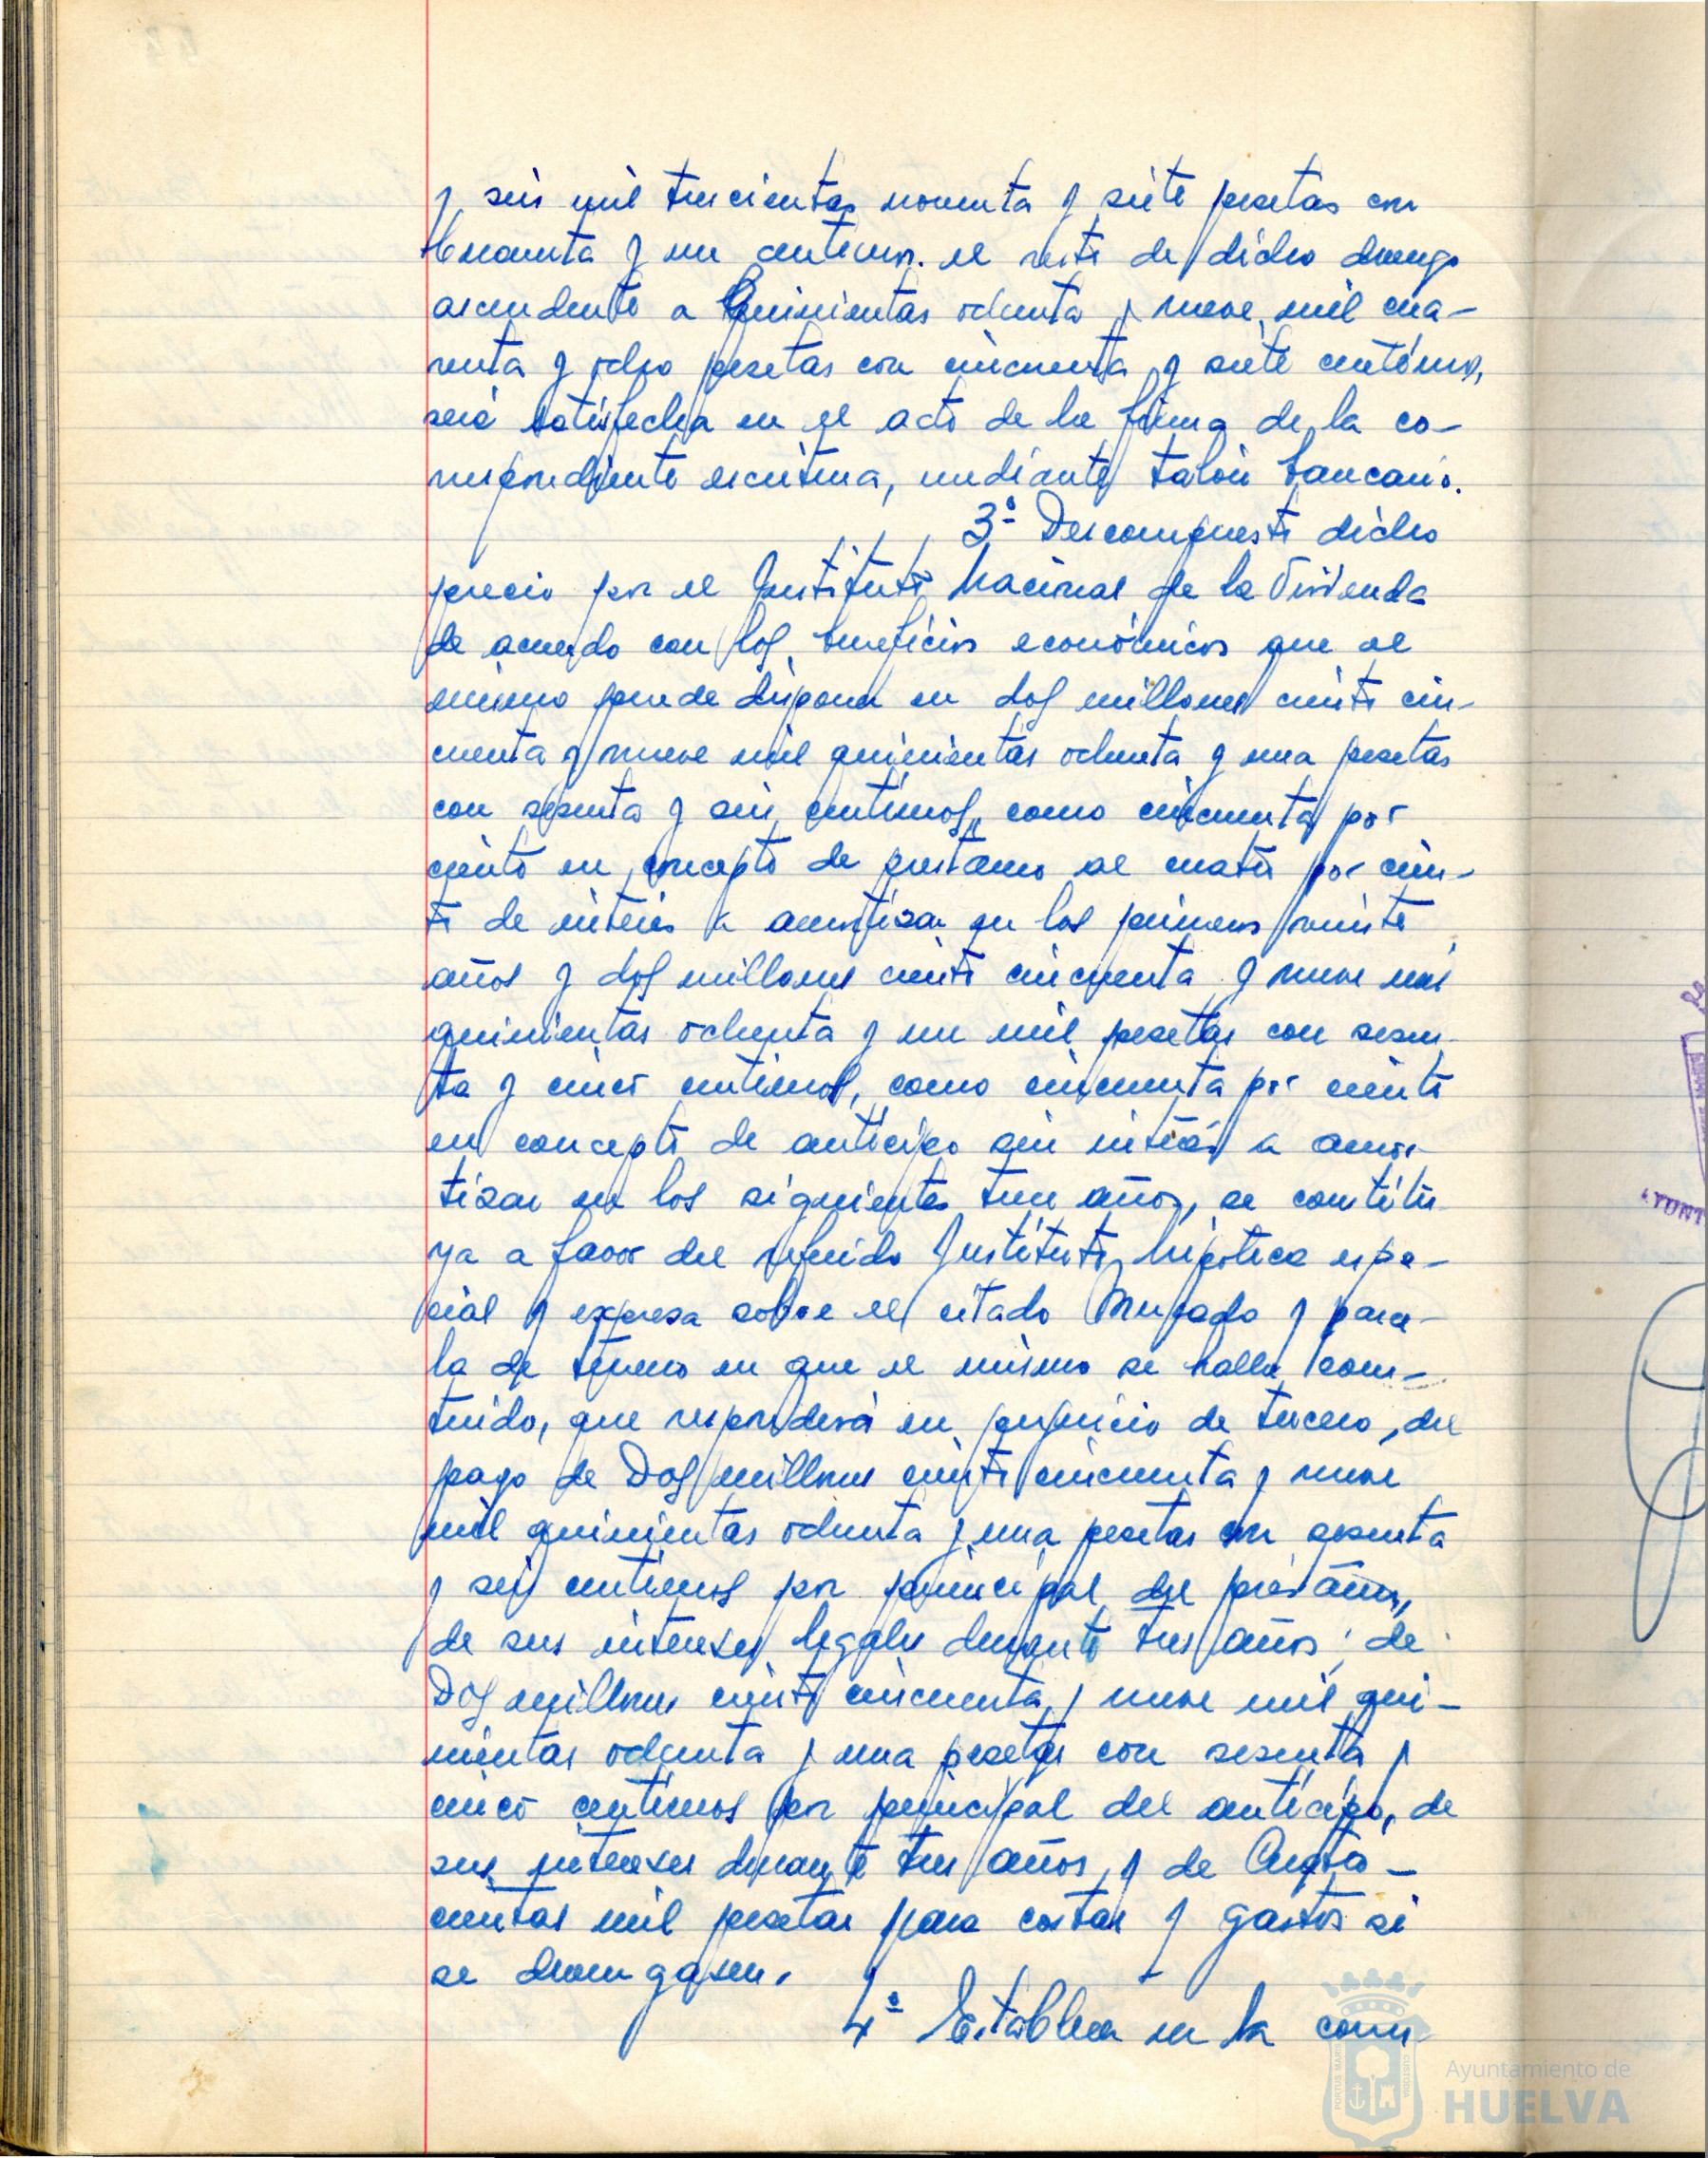 y seis mil trescientas noventa y siete pesetas con
cuarenta y un centimos. el resto de dicho devengo
ascendente a Quinientas ochenta y nueve mil cua-
renta y ocho pesetas con cincuenta y siete centimos,
será satisfecha en el acto de la firma de la co-
rrespondiente escritura, mediante talón bancario.
3º- Descompuesto dicho
precio por el Instituto Nacional de la Vivienda
de acuerdo con los beneficios económicos que el
mismo puede disponer en dos millones ciento cin-
cuenta y nueve mil quinientas ochenta y una pesetas
con sesenta y seis centimos, como cincuenta por
ciento en concepto de prestamo al cuatro por cien-
to de interés a amortizar en los primeros veinte
años y dos millones ciento cincuenta y nueve mil
quinientas ochenta y un mil pesetas con sesen-
ta y cinco centimos, como cincuenta por ciento
en concepto de anticipo sin interés a amor-
tizar en los siguientes tres años, se constitu-
ya a favor del referido Instituto, hipoteca espe-
cial y expresa sobre el citado Mercado y parce-
la de terreno en que el mismo se halla cons-
truido, que responderá en perjuicio de tercero, del
pago de Dos millones ciento cincuenta y nueve
mil quinientas ochenta y una pesetas con sesenta
y seis centimos por principal del préstamo,
de sus intereses legales durante tres años; de
Dos millones ciento cincuenta y nueve mil qui-
nientas ochenta y una pesetas con sesenta y
cinco centimos por principal del anticipo, de
sus intereses durante tres años, y de Cuatro-
cientas mil pesetas para costas y gastos si
se devengasen.
4º- Establecer en la corres-
Ayuntamiento de
HUELVA